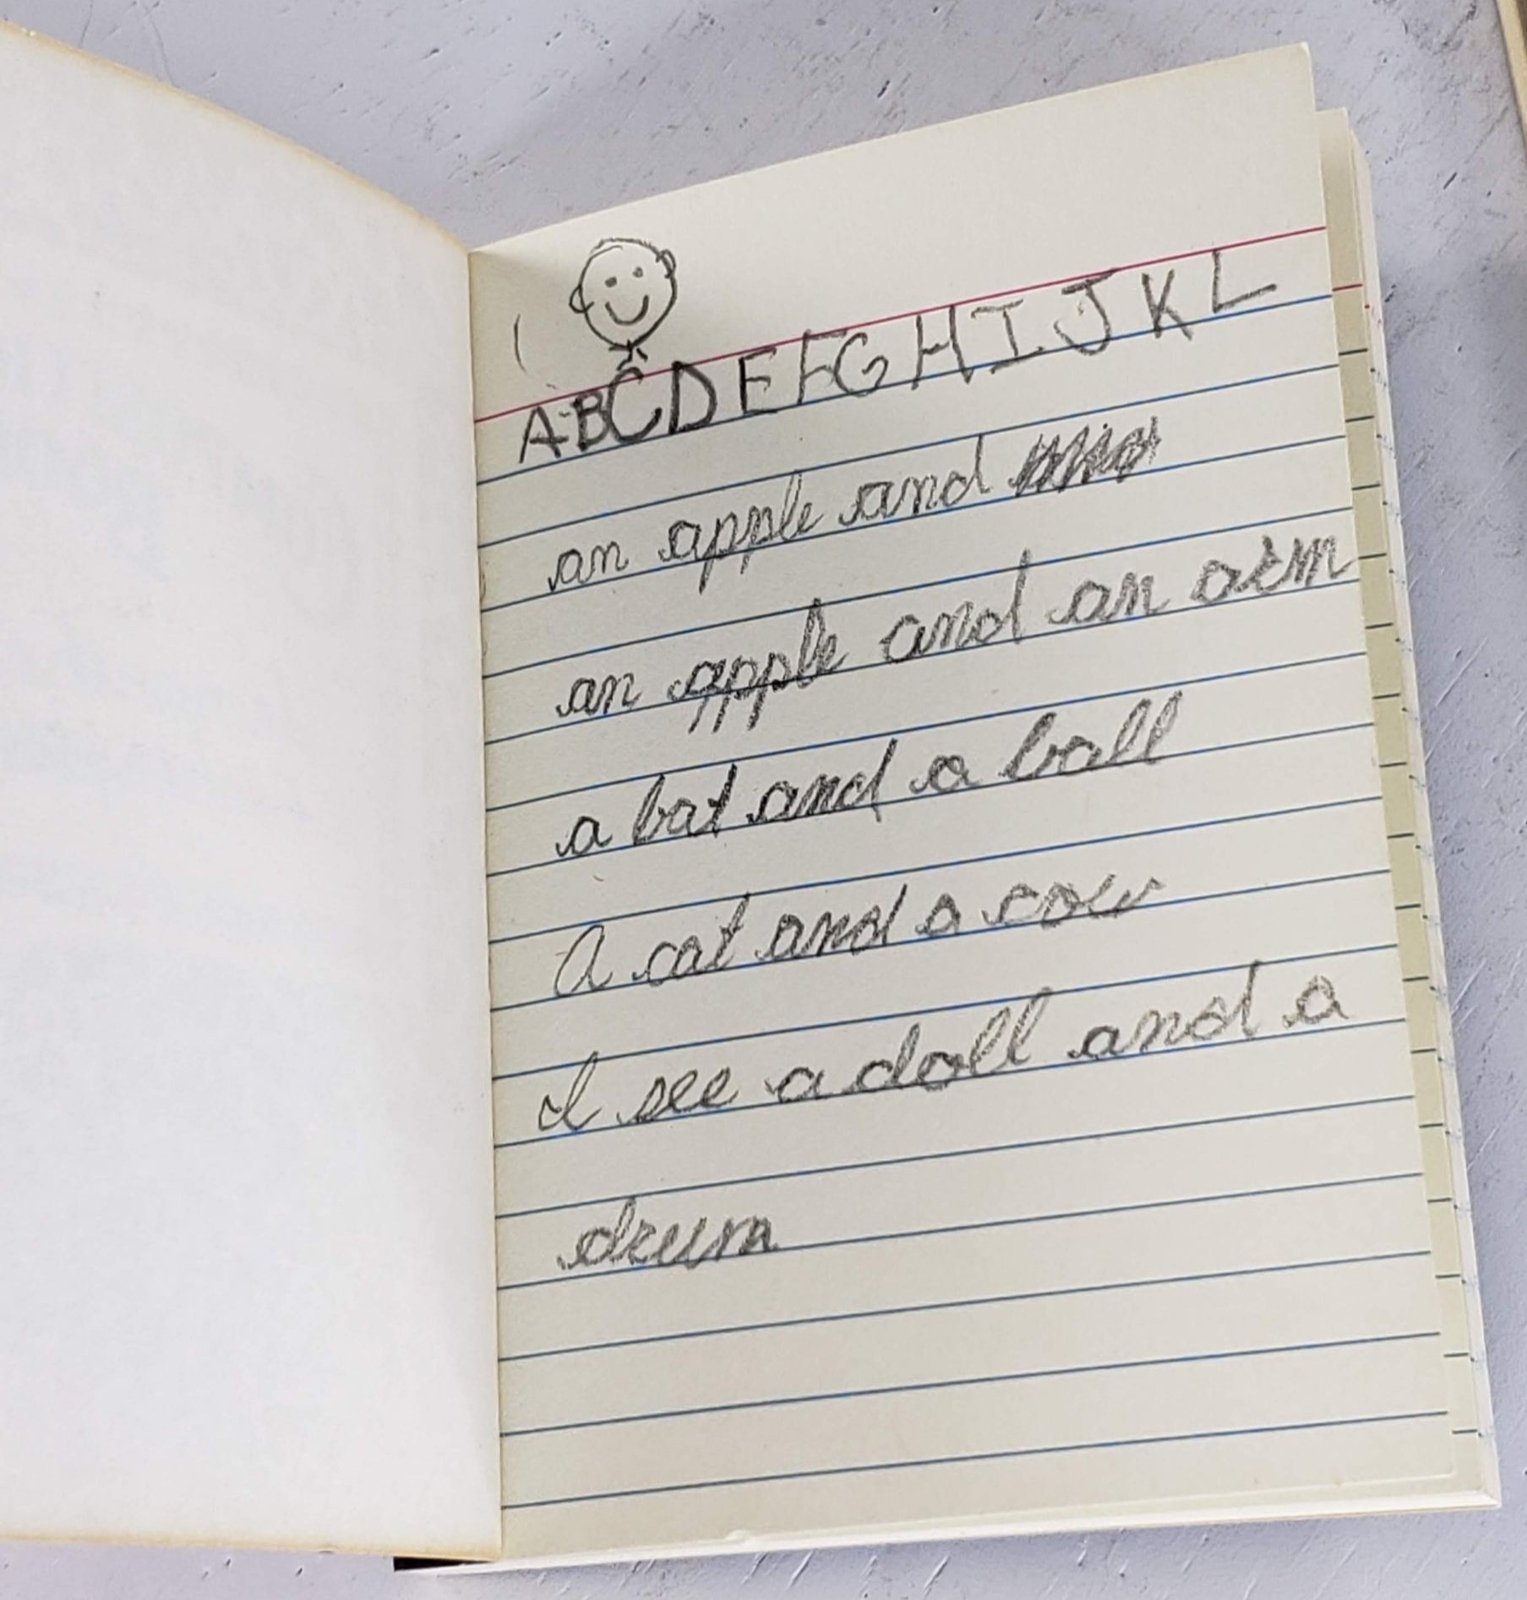 ABCDEFGHIJKL
an apple and
an apple and an arm
a bat and a ball
A cat and a cow
I see a doll and a
drum